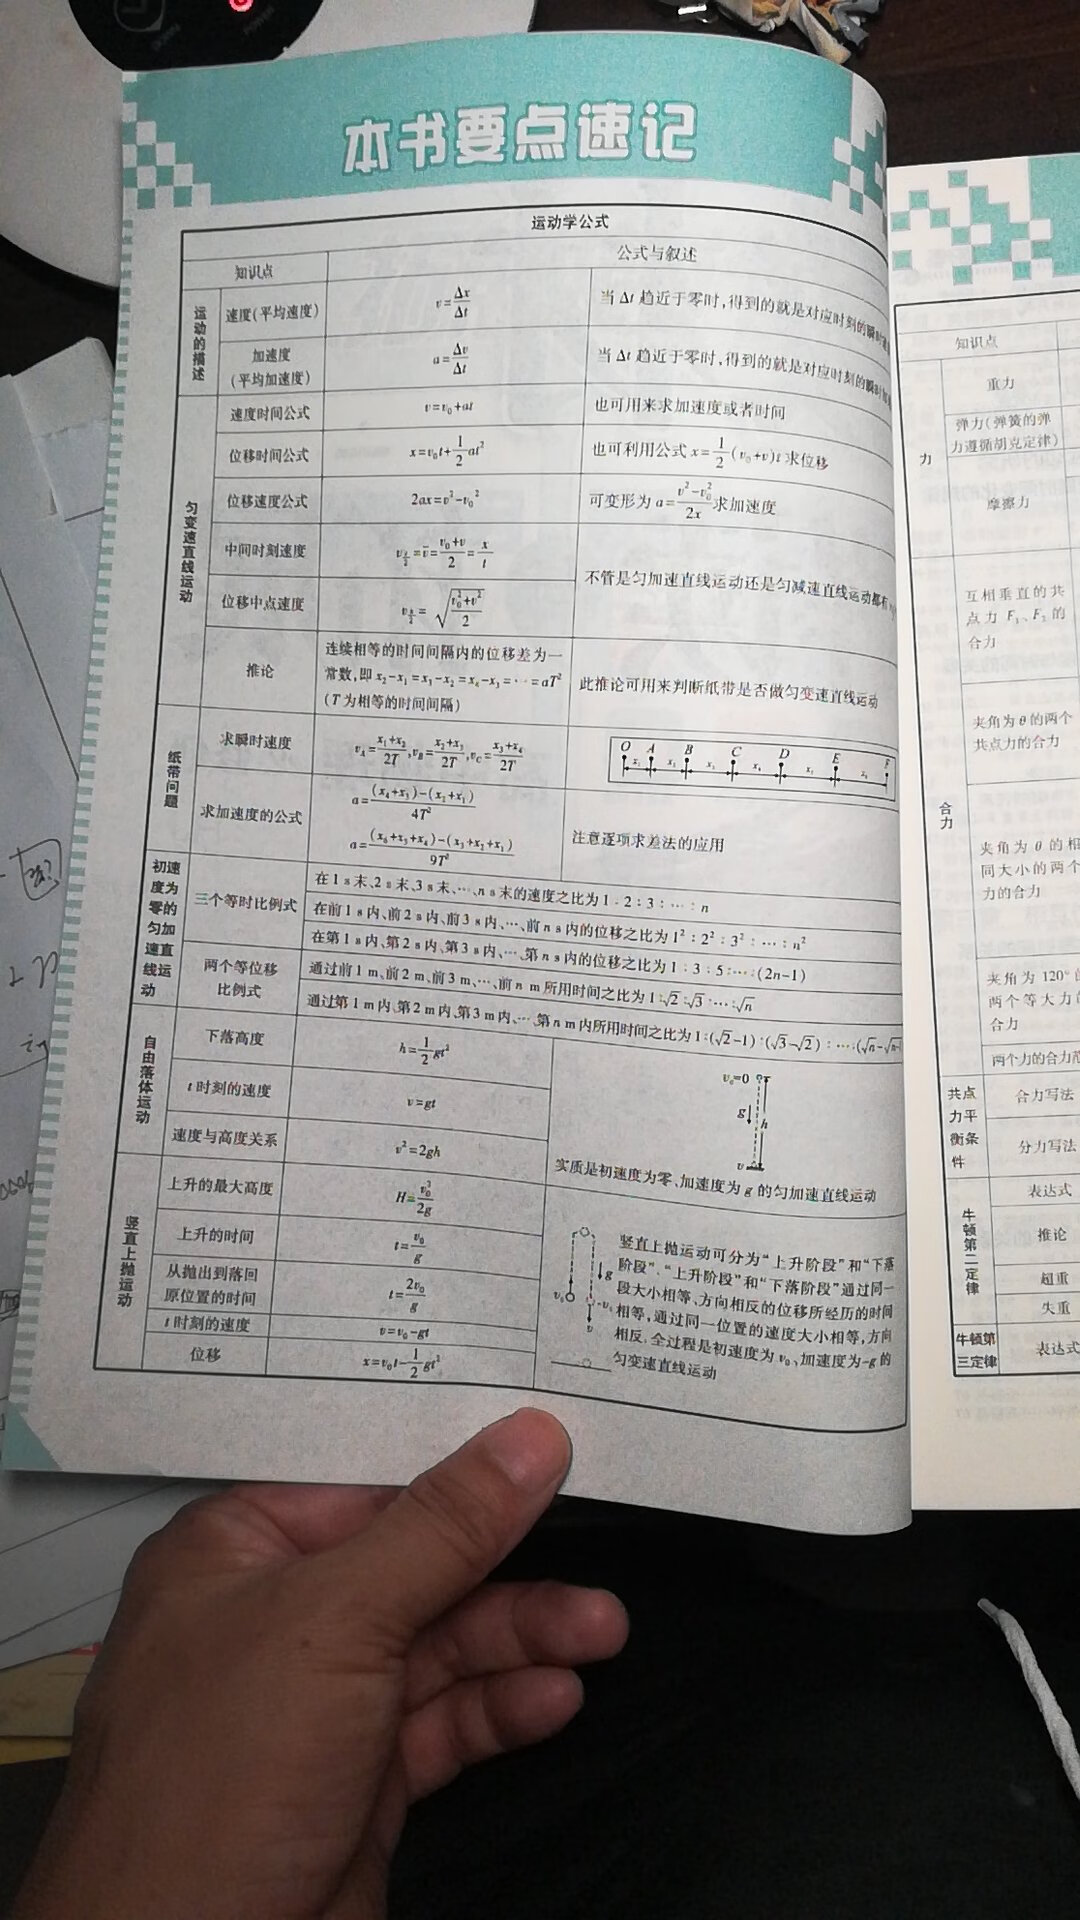 本书要点速记
运动学公式
知识点
公式与叙述
运动的描述
速度(平均速度)
v=Δx/Δt
当 Δt 趋近于零时,得到的就是对应时刻的瞬时
加速度
(平均加速度)
a=Δv/Δt
当 Δt 趋近于零时,得到的就是对应时刻的瞬时
匀变速直线运动
速度时间公式
v=v₀+at
也可用来求加速度或者时间
位移时间公式
x=v₀t+1/2at²
也可利用公式 x=1/2(v₀+v)t 求位移
位移速度公式
2ax=v²-v₀²
可变形为 a=(v²-v₀²)/2x 求加速度
中间时刻速度
v_{t/2}=v̄=(v₀+v)/2=x/t
不管是匀加速直线运动还是匀减速直线运动都有
位移中点速度
v_{x/2}=√((v₀²+v²)/2)
推论
连续相等的时间间隔内的位移差为一
常数,即 x₂-x₁=x₃-x₂=x₄-x₃=…=aT²
(T 为相等的时间间隔)
此推论可用来判断纸带是否做匀变速直线运动
纸带问题
求瞬时速度
v_A=(x₁+x₂)/2T,v_B=(x₂+x₃)/2T,v_C=(x₃+x₄)/2T
O A B C D E F
x₁ x₂ x₃ x₄ x₅ x₆
求加速度的公式
a=((x₄+x₃)-(x₂+x₁))/4T²
a=((x₆+x₅+x₄)-(x₃+x₂+x₁))/9T²
注意逐项求差法的应用
初速
度为
零的
匀加
速直
线运
动
三个等时比例式
在 1 s 末、2 s 末、3 s 末、…、n s 末的速度之比为 1∶2∶3∶…∶n
在前 1 s 内、前 2 s 内、前 3 s 内、…、前 n s 内的位移之比为 1²∶2²∶3²∶…∶n²
在第 1 s 内、第 2 s 内、第 3 s 内、…、第 n s 内的位移之比为 1∶3∶5∶…∶(2n-1)
两个等位移
比例式
通过前 1 m、前 2 m、前 3 m、…、前 n m 所用时间之比为 1∶√2∶√3∶…∶√n
通过第 1 m 内、第 2 m 内、第 3 m 内、…、第 n m 内所用时间之比为 1∶(√2-1)∶(√3-√2)∶…∶(√n-√n-
自由落体运动
下落高度
h=1/2gt²
t 时刻的速度
v=gt
速度与高度关系
v²=2gh
v₀=0
g
h
v
实质是初速度为零、加速度为 g 的匀加速直线运动
竖直上抛运动
上升的最大高度
H=v₀²/2g
上升的时间
t=v₀/g
从抛出到落回
原位置的时间
t=2v₀/g
t 时刻的速度
v=v₀-gt
位移
x=v₀t-1/2gt²
v₀
g
-v₀
v
竖直上抛运动可分为“上升阶段”和“下落
阶段”、“上升阶段”和“下落阶段”通过同一
段大小相等、方向相反的位移所经历的时间
相等,通过同一位置的速度大小相等,方向
相反,全过程是初速度为 v₀、加速度为-g 的
匀变速直线运动
知识点
力
重力
弹力(弹簧的弹
力遵循胡克定律)
摩擦力
合力
互相垂直的共
点力 F₁、F₂ 的
合力
夹角为 θ 的两个
共点力的合力
夹角为 θ 的相
同大小的两个
力的合力
夹角为 120°的
两个等大力的
合力
两个力的合力范
共点
力平
衡条
件
合力写法
分力写法
牛顿第二定律
表达式
推论
超重
失重
牛顿第
三定律
表达式